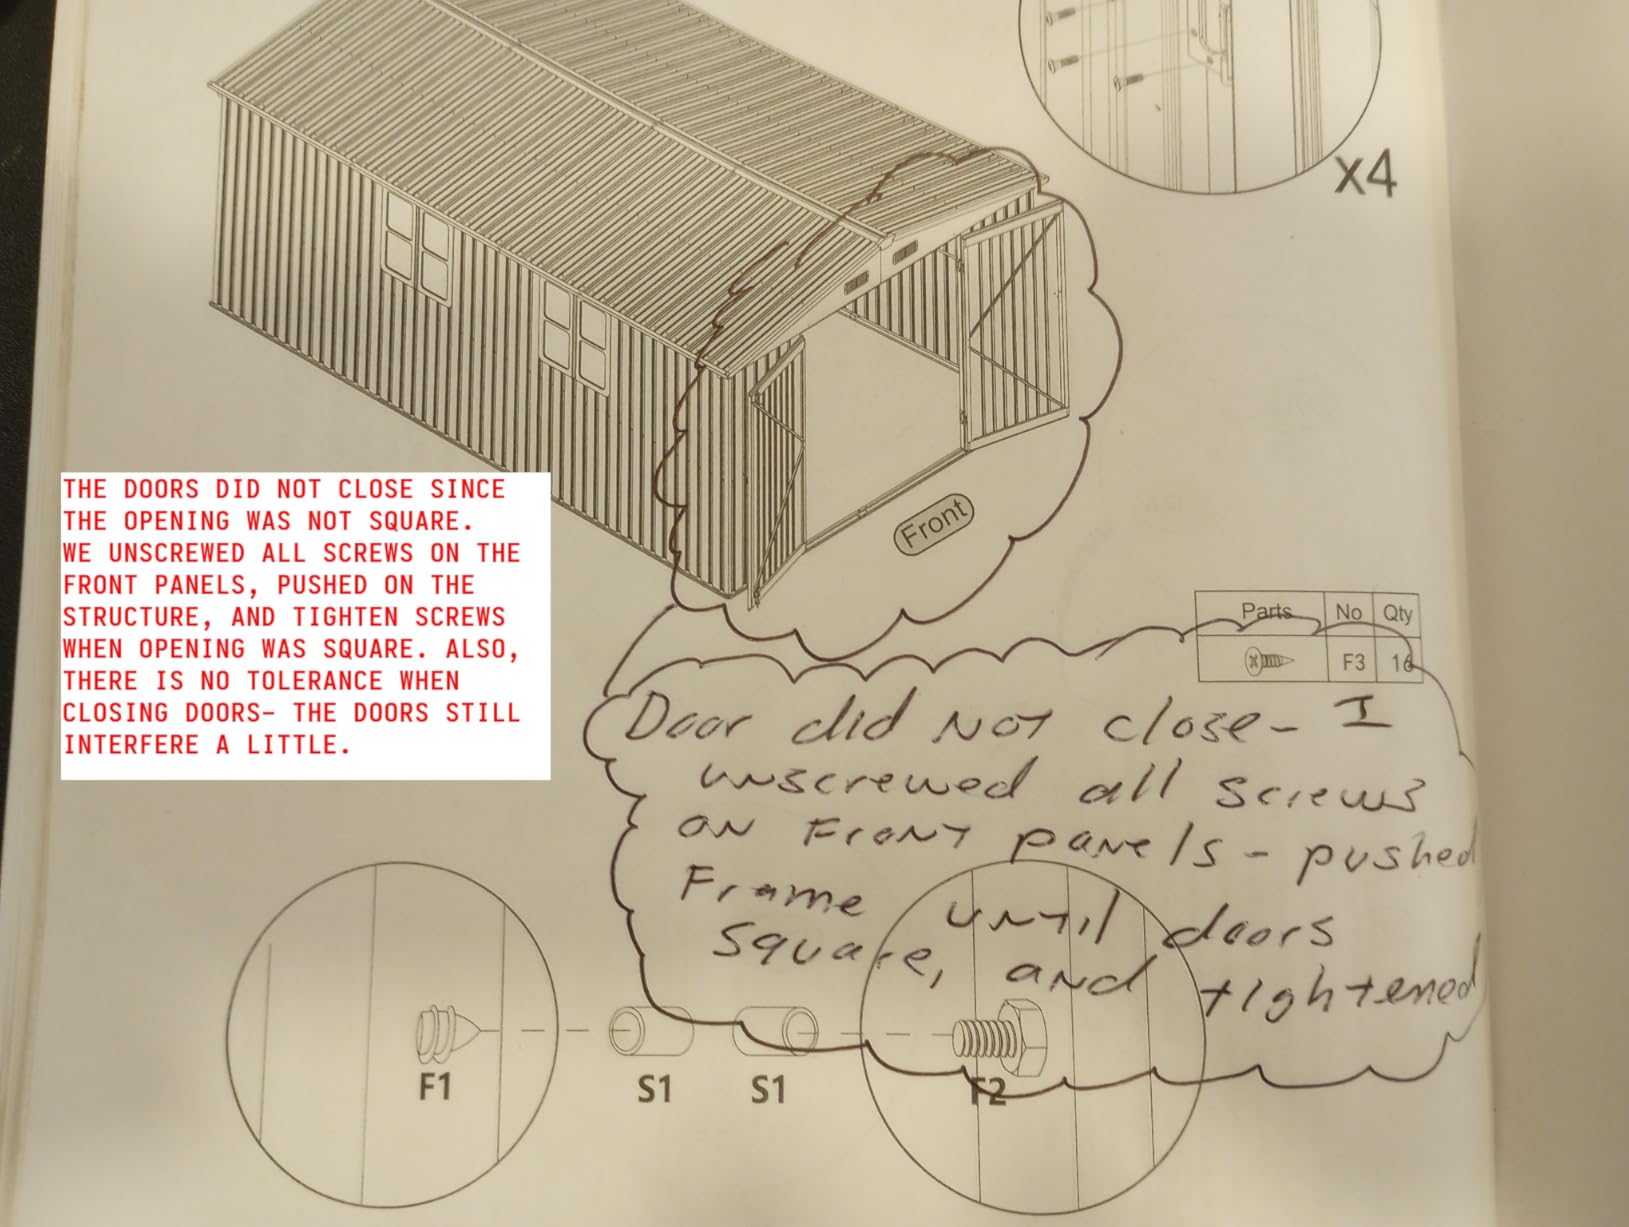 X4
Front
THE DOORS DID NOT CLOSE SINCE
THE OPENING WAS NOT SQUARE.
WE UNSCREWED ALL SCREWS ON THE
FRONT PANELS, PUSHED ON THE
STRUCTURE, AND TIGHTEN SCREWS
WHEN OPENING WAS SQUARE. ALSO,
THERE IS NO TOLERANCE WHEN
CLOSING DOORS- THE DOORS STILL
INTERFERE A LITTLE.
Parts No Qty
F3 16
Door did NOT close- I
unscrewed all screws
on Front panels - pushed
Frame until doors
square, and tightened
F1 S1 S1 F2